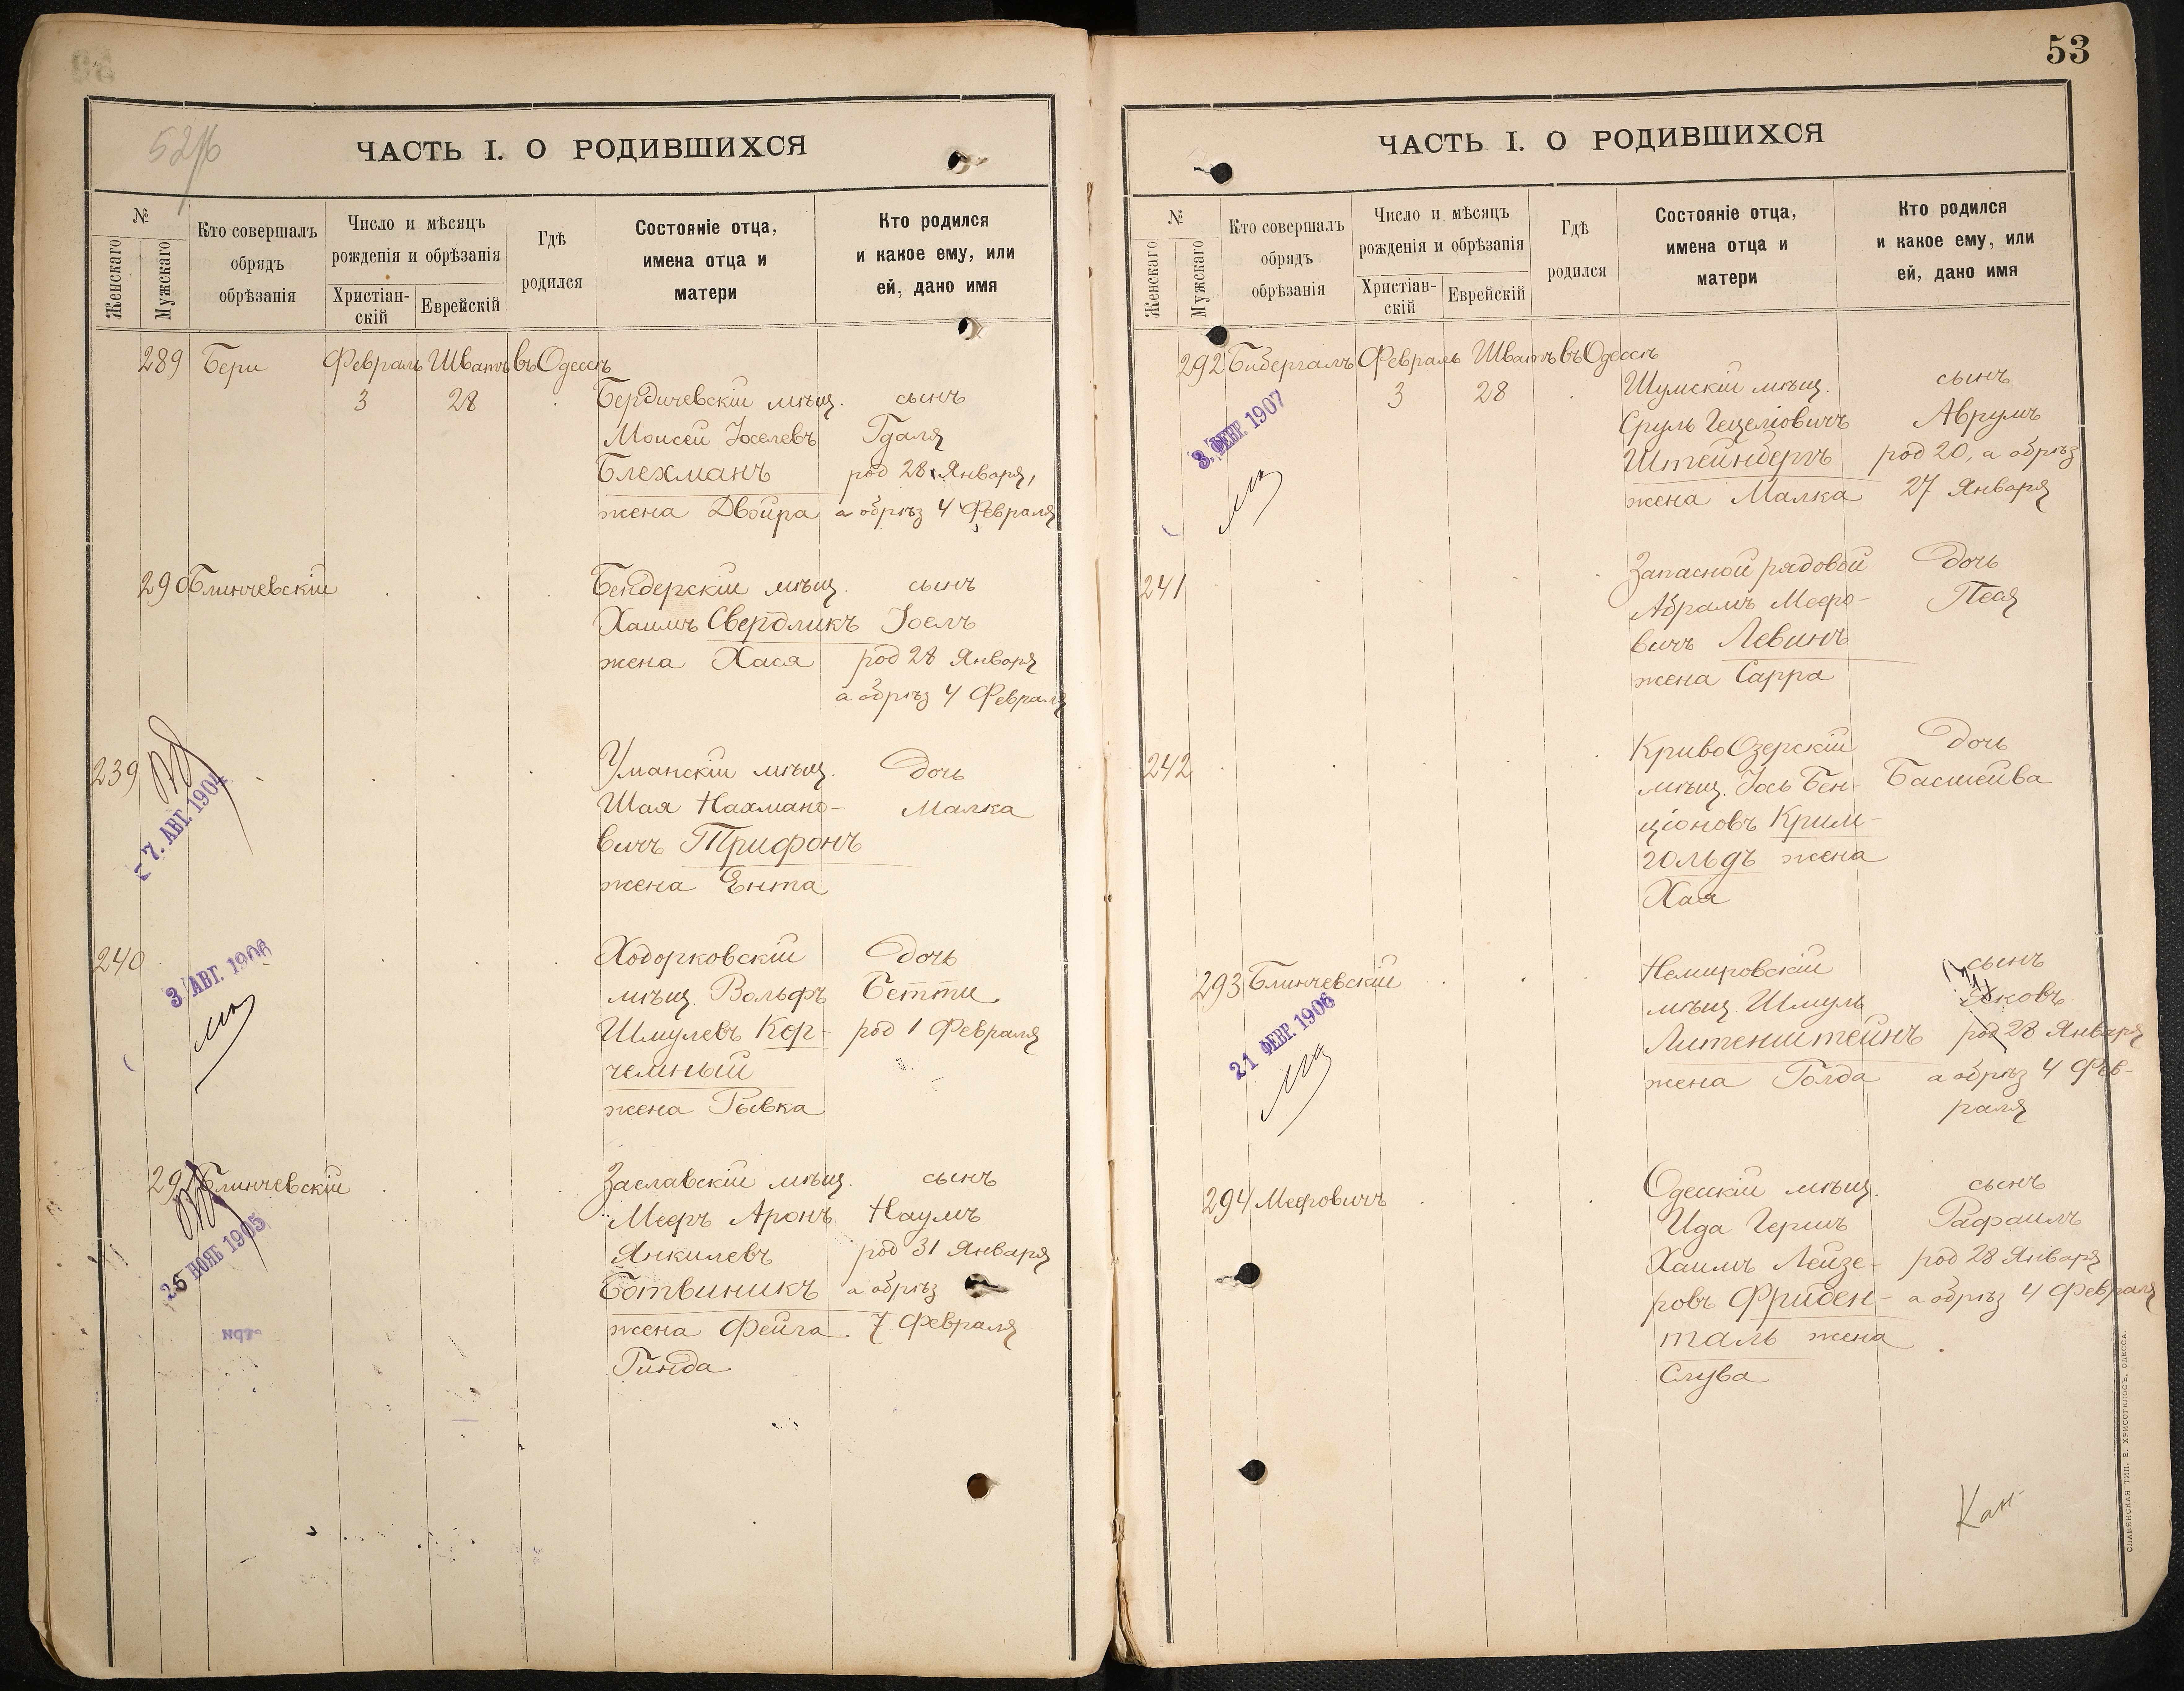 52/б
ЧАСТЬ I. О РОДИВШИХСЯ
№
Женскаго
Мужскаго
Кто совершалъ
обрядъ
обрѣзанія
Число и мѣсяцъ
рожденія и обрѣзанія
Христіан-
скій
Еврейскій
Гдѣ
родился
Состояніе отца,
имена отца и
матери
Кто родился
и какое ему, или
ей, дано имя
289 Бери Февраль Шватъ въ Одессѣ
3 28 Бердичевскій мѣщ. сынъ
Моисей Іоселевъ Гдаля
Блехманъ род 28 Января,
жена Двойра а обрѣз 4 Февраля
290 Блинчевскій Бендерскій мѣщ. сынъ
Хаимъ Свердликъ Іоелъ
жена Хася род 28 Января
а обрѣз 4 Февраля
239 Уманскій мѣщ. дочь
Шая Нахмано- Малка
вичъ Трифонъ
жена Ента
7. АВГ. 1904
240 Ходорковскій дочь
мѣщ. Вольфъ Бетти
Шмулевъ Кор- род 1 Февраля
чемный
жена Рывка
3. АВГ. 1906
291 Блинчевскій Заславскій мѣщ. сынъ
Мееръ Аронъ Наумъ
Янкилевъ род 31 Января
Ботвиникъ а обрѣз
жена Фейга 7 Февраля
Гинда
26 НОЯБ 1905
53
ЧАСТЬ I. О РОДИВШИХСЯ
№
Женскаго
Мужскаго
Кто совершалъ
обрядъ
обрѣзанія
Число и мѣсяцъ
рожденія и обрѣзанія
Христіан-
скій
Еврейскій
Гдѣ
родился
Состояніе отца,
имена отца и
матери
Кто родился
и какое ему, или
ей, дано имя
292 Бибергалъ Февраль Шватъ въ Одессѣ
3 28 Шумскій мѣщ. сынъ
Сруль Гецеліовичъ Аврумъ
Штейнбергъ род 20, а обрѣз
жена Малка 27 Января
3. ФЕВР. 1907
241 Запасной рядовой дочь
Абрамъ Меєро- Песя
вичъ Левинъ
жена Сарра
242 КривоОзерскій дочь
мѣщ. Іось Бен- Басшейва
ціоновъ Крим-
гольдъ жена
Хая
293 Блинчевскій Немировскій сынъ
мѣщ. Шмуль Яковъ
Литенштейнъ род 28 Января
жена Голда а обрѣз 4 Фев-
раля
21 ФЕВР. 1906
294 Меєровичъ Одесскій мѣщ. сынъ
Ида Гершъ Рафаилъ
Хаимъ Лейзе- род 28 Января
ровъ Фриден- а обрѣз 4 Февраля
таль жена
Слува
СЛАВЯНСКАЯ ТИП. Е. ХРИСОГЕЛОСЪ, ОДЕССА.